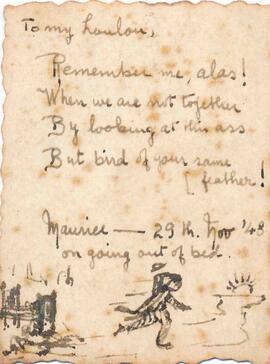 To my Loulou,
Remember me, alas!
When we are not together
By looking at this ass
But bird of your same
[feather!
Maurice — 29 th. Nov '48
on going out of bed.